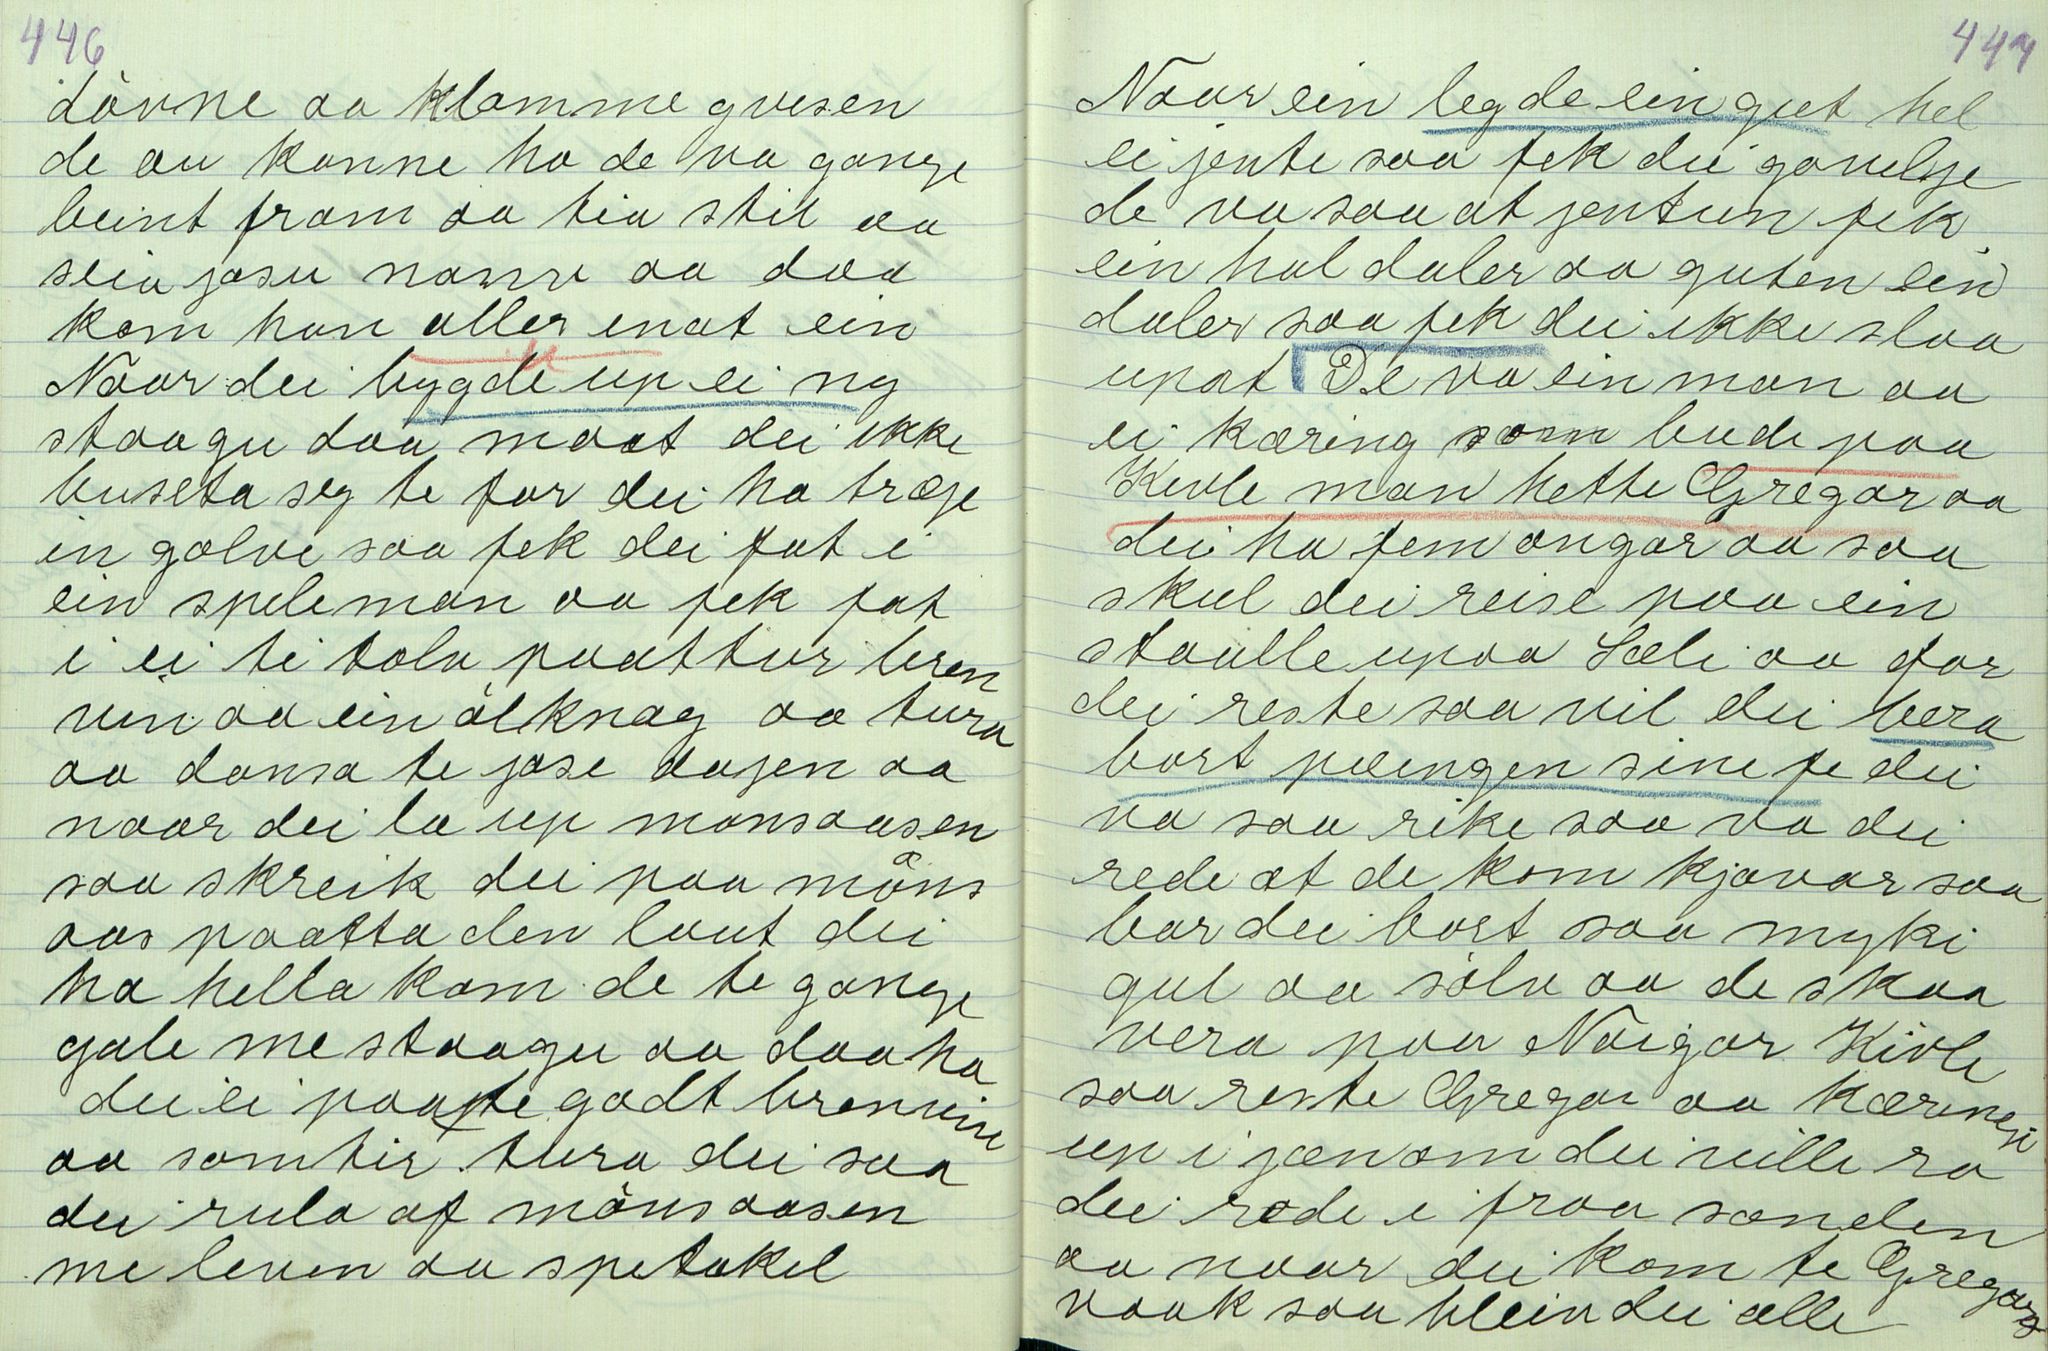 446
Lòvne aa klamme gvesen
de au kanne ha de va gange
beint fram aa tia stil aa
seia jasu namn aa daa
kom han aller inat ein
Naar dei bygde up ei ny
staagu daa maat dei ikke
buseta seg te før dei ha træje
in gølve saa fek dei fat i
ein speleman aa fek fat
i ei ti tolv paattur bren
vin aa ein ölknag aa tura
aa dansa te jase dajen aa
naar dei la up mønsaasen
saa skreik dei paa møns
aas paatta den laut dei
ha hella kom de te gange
gale me staagu aa daa ha
dei ei paatte godt brenvine
aa somtir tura dei saa
dei rula af mønsaasen
me leven aa spetakel
447
Naar ein legde ein gut hel
ei jente saa fek dei gauelsje
de va saa at jentun fek
ein hal daler aa guten ein
daler saa fek dei ikke slaa
upat De va ein man aa
ei kæring som bude paa
Kivle man hette Gregar aa
dei ha fem ongar aa saa
skul dei reise paa ein
staulle upaa Læli aa før
dei reste saa vil dei bera
bort pæingen sine fe dei
va saa rike saa va dei
rede at de kom kjøvar saa
bar dei bort saa myki
gul aa sølv aa de skaa
vera paa Noigar Kivle
saa reste Gregar aa kæringji
up i jænom dei ville ra
dei rede i fraa sanden
aa naar dei kom te Gregars
vaak saa klein dei alle